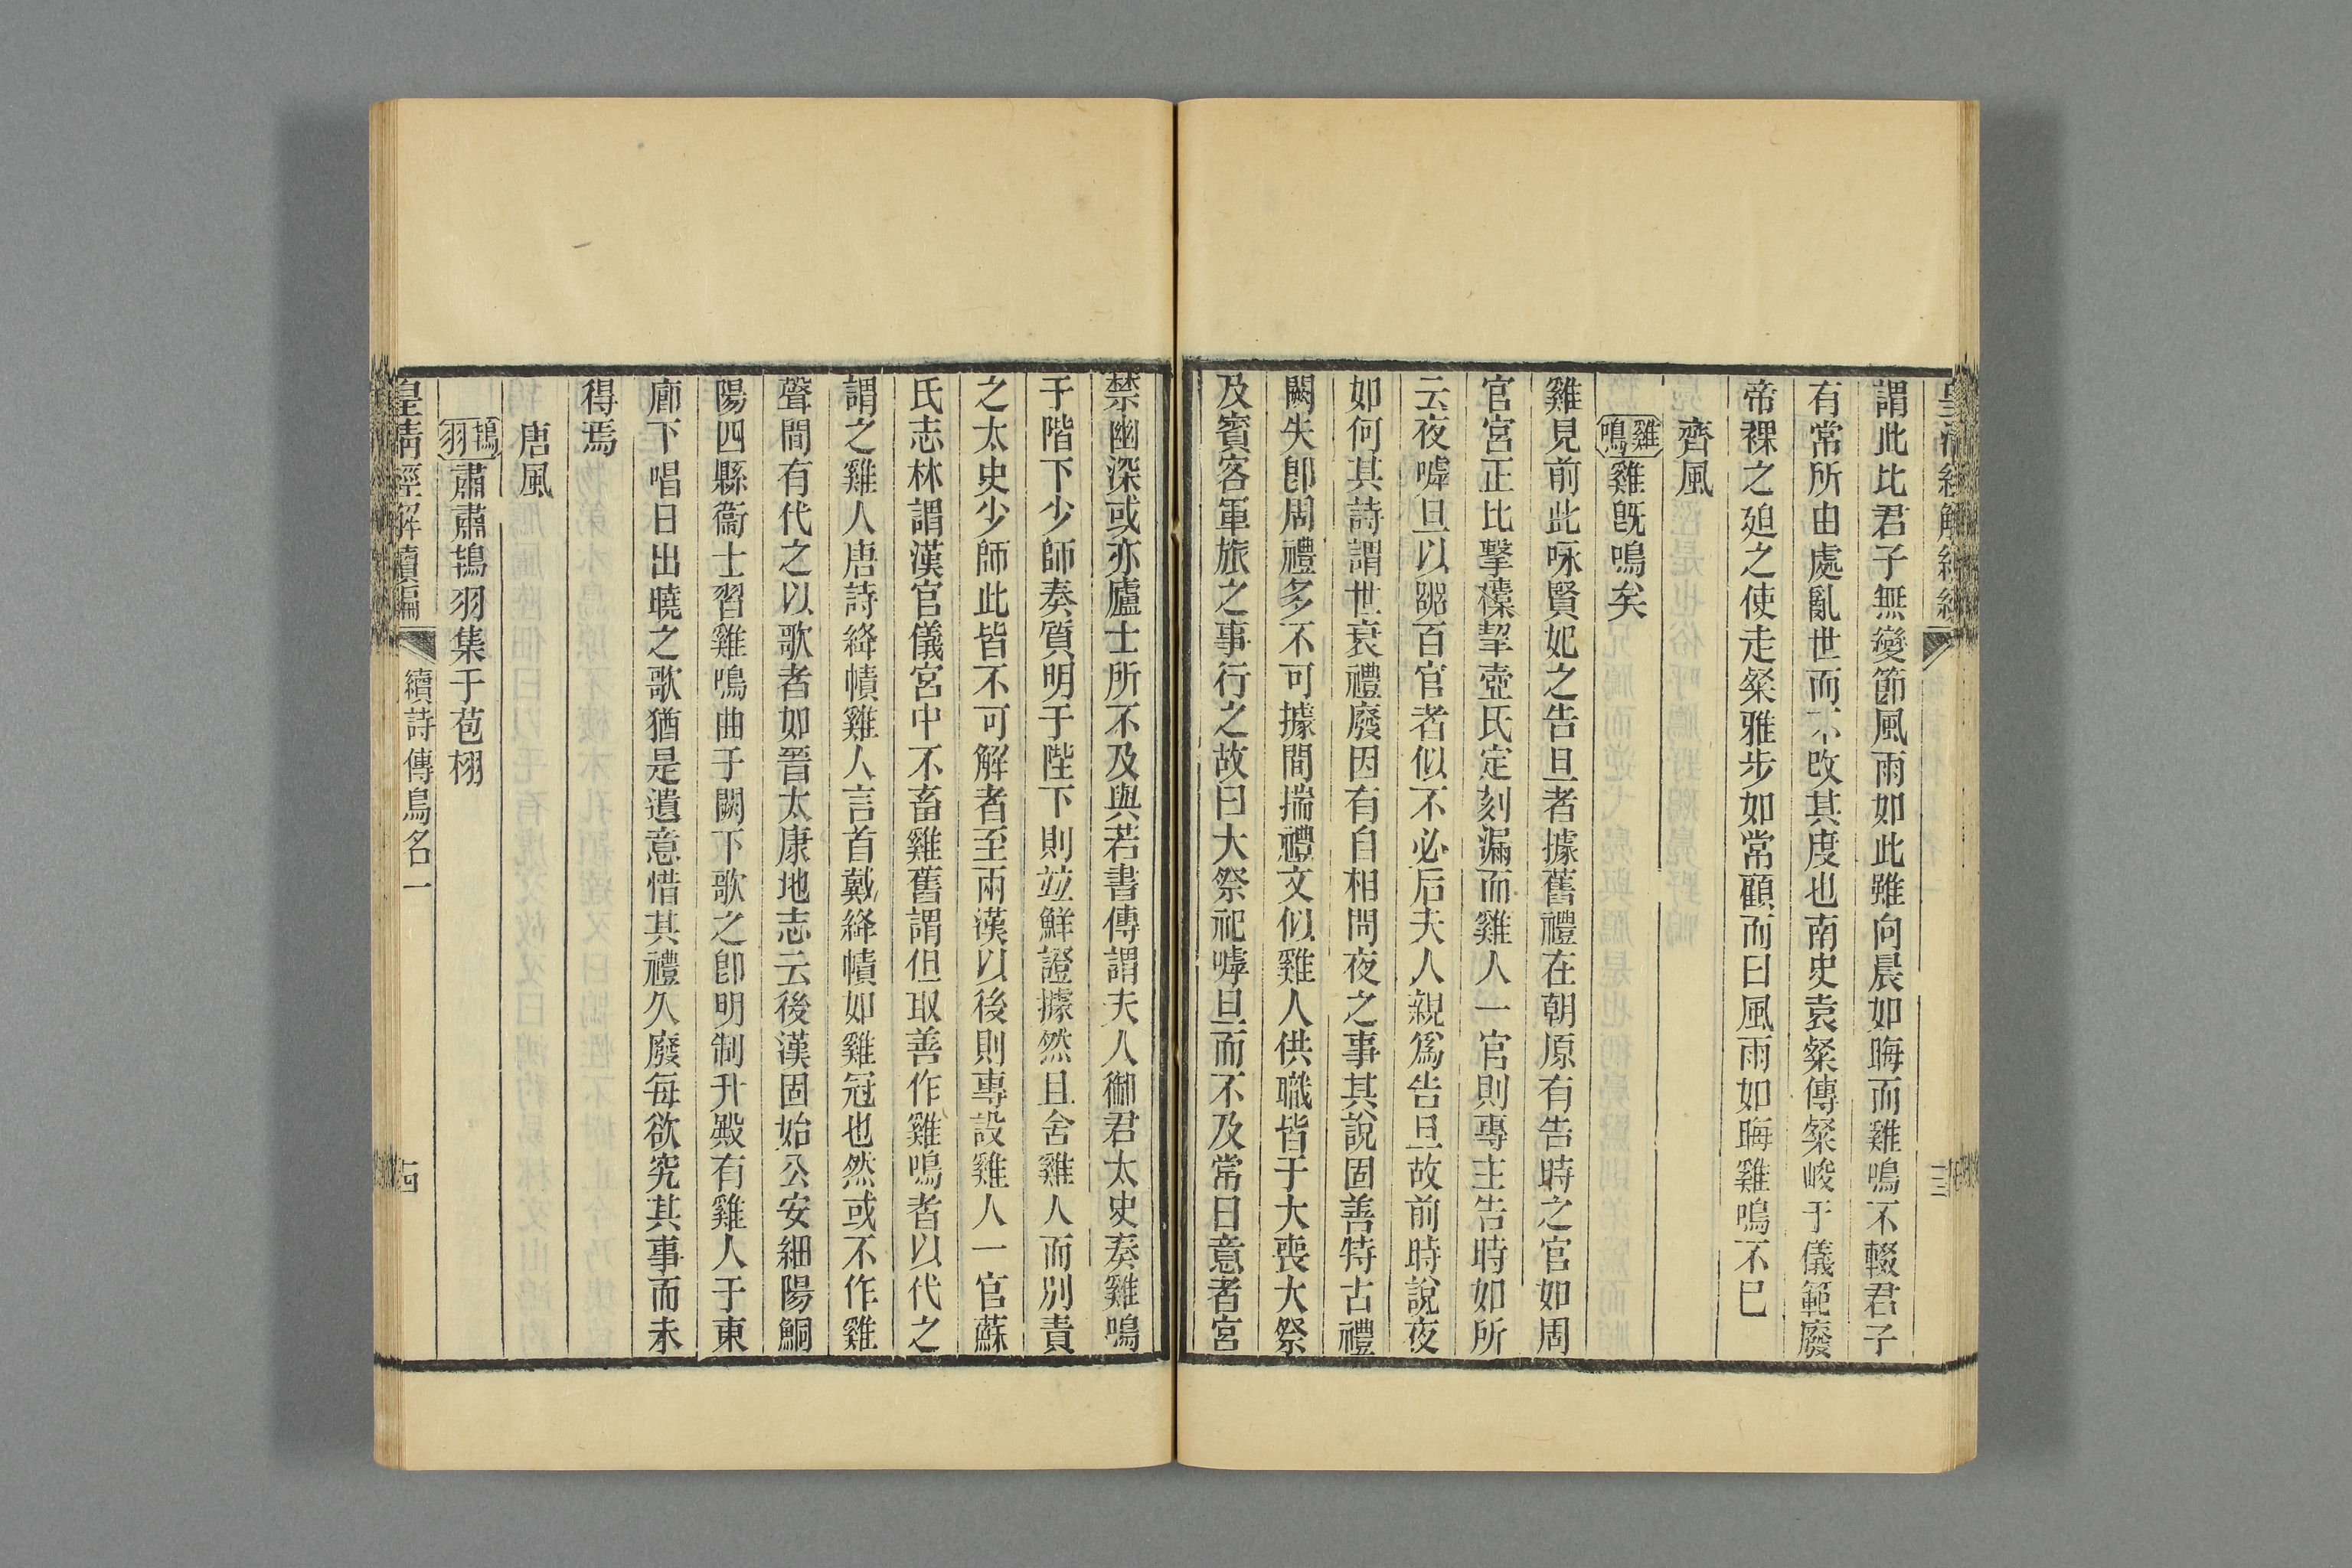 謂此比君子無變節風雨如此雖向晨如晦而雞鳴不輟君子
有常所由處亂世而不改其度也南史袁粲傳粲峻于儀範廢
帝裸之廹之使走粲雅步如常顧而曰風雨如晦雞鳴不已
齊風
雞鳴 雞旣鳴矣
雞見前此咏賢妃之告旦者據舊禮在朝原有告時之官如周
官宮正比擊𣝔挈壺氏定刻漏而雞人一官則專主告時如所
云夜嘑旦以嘂百官者似不必后夫人親爲告旦故前時說夜
如何其詩謂世衰禮廢因有自相問夜之事其說固善特古禮
闕失卽周禮多不可據間揣禮文似雞人供職皆于大喪大祭
及賓客軍旅之事行之故曰大祭祀嘑旦而不及常日意者宮
禁幽深或亦廬士所不及與若書傳謂夫人御君太史奏雞鳴
于階下少師奏質明于陛下則竝鮮證據然且舍雞人而別責
之太史少師此皆不可解者至兩漢以後則專設雞人一官蘇
氏志林謂漢官儀宮中不畜雞舊謂但取善作雞鳴者以代之
謂之雞人唐詩絳幘雞人言首戴絳幘如雞冠也然或不作雞
聲間有代之以歌者如晉太康地志云後漢固始公安細陽鮦
陽四縣衞士習雞鳴曲于闕下歌之卽明制升殿有雞人于東
廊下唱日出曉之歌猶是遺意惜其禮久廢每欲究其事而未
得焉
唐風
鴇羽 肅肅鴇羽集于苞栩
皇清經解續編 續詩傳鳥名一 十四